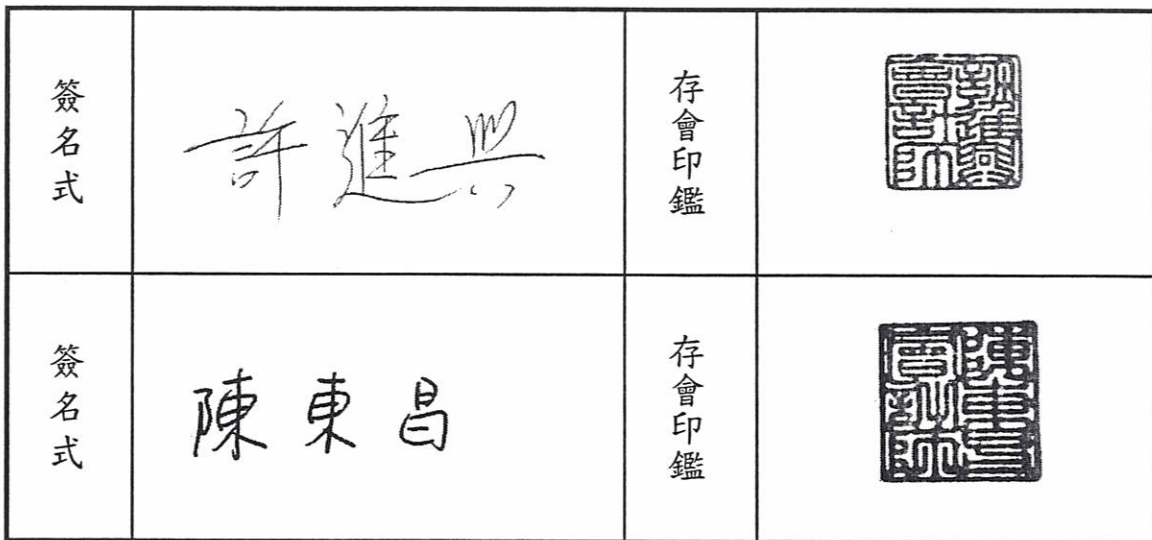 簽名式
許進興
存會印鑑
許進興會計師
簽名式
陳東昌
存會印鑑
陳東昌會計師